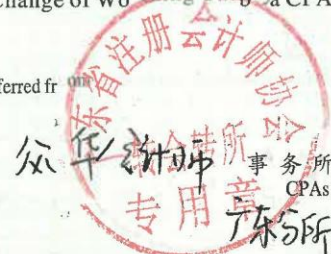 Change of Wo a CPA
ferred fr
东省注册会计师协会
众华会计师 事务所
转所 CPAs
专用章
广东分所